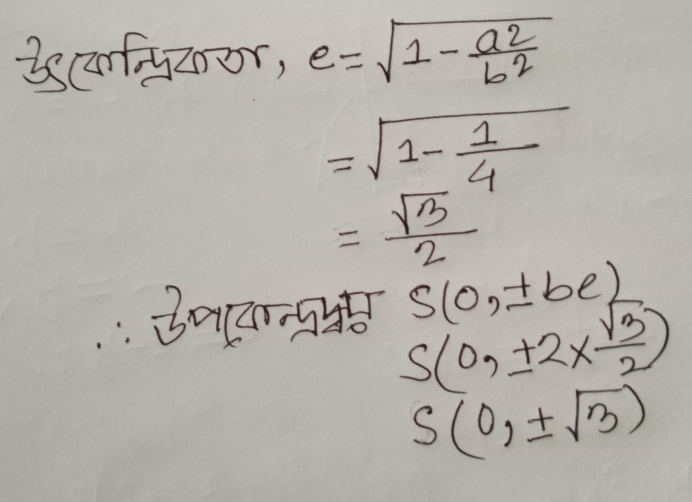 উৎকেন্দ্রিকতা, e = √(1 - a²/b²)
= √(1 - 1/4)
= √3/2
∴ উপকেন্দ্রদ্বয় S(0, ±be)
S(0, ±2×√3/2)
S(0, ±√3)